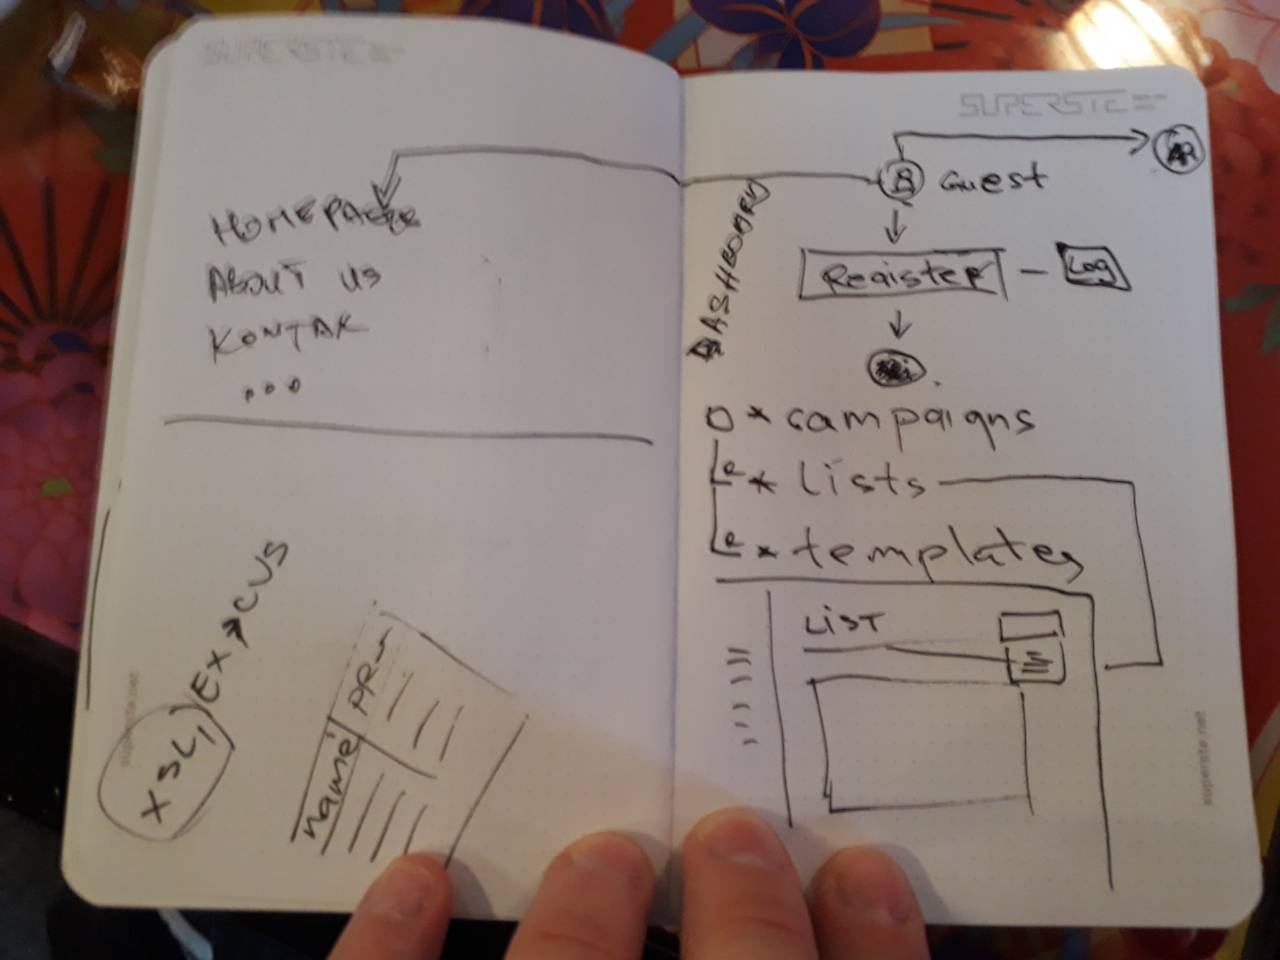 SUPERSTE
HOMEPAGE
ABOUT US
KONTAK
...
XSL, EX > CVS
name
superste.net
SUPERSTE
Guest
DASHBOARD
Register - Log
* campaigns
* Lists
* templates
LIST
superste.net